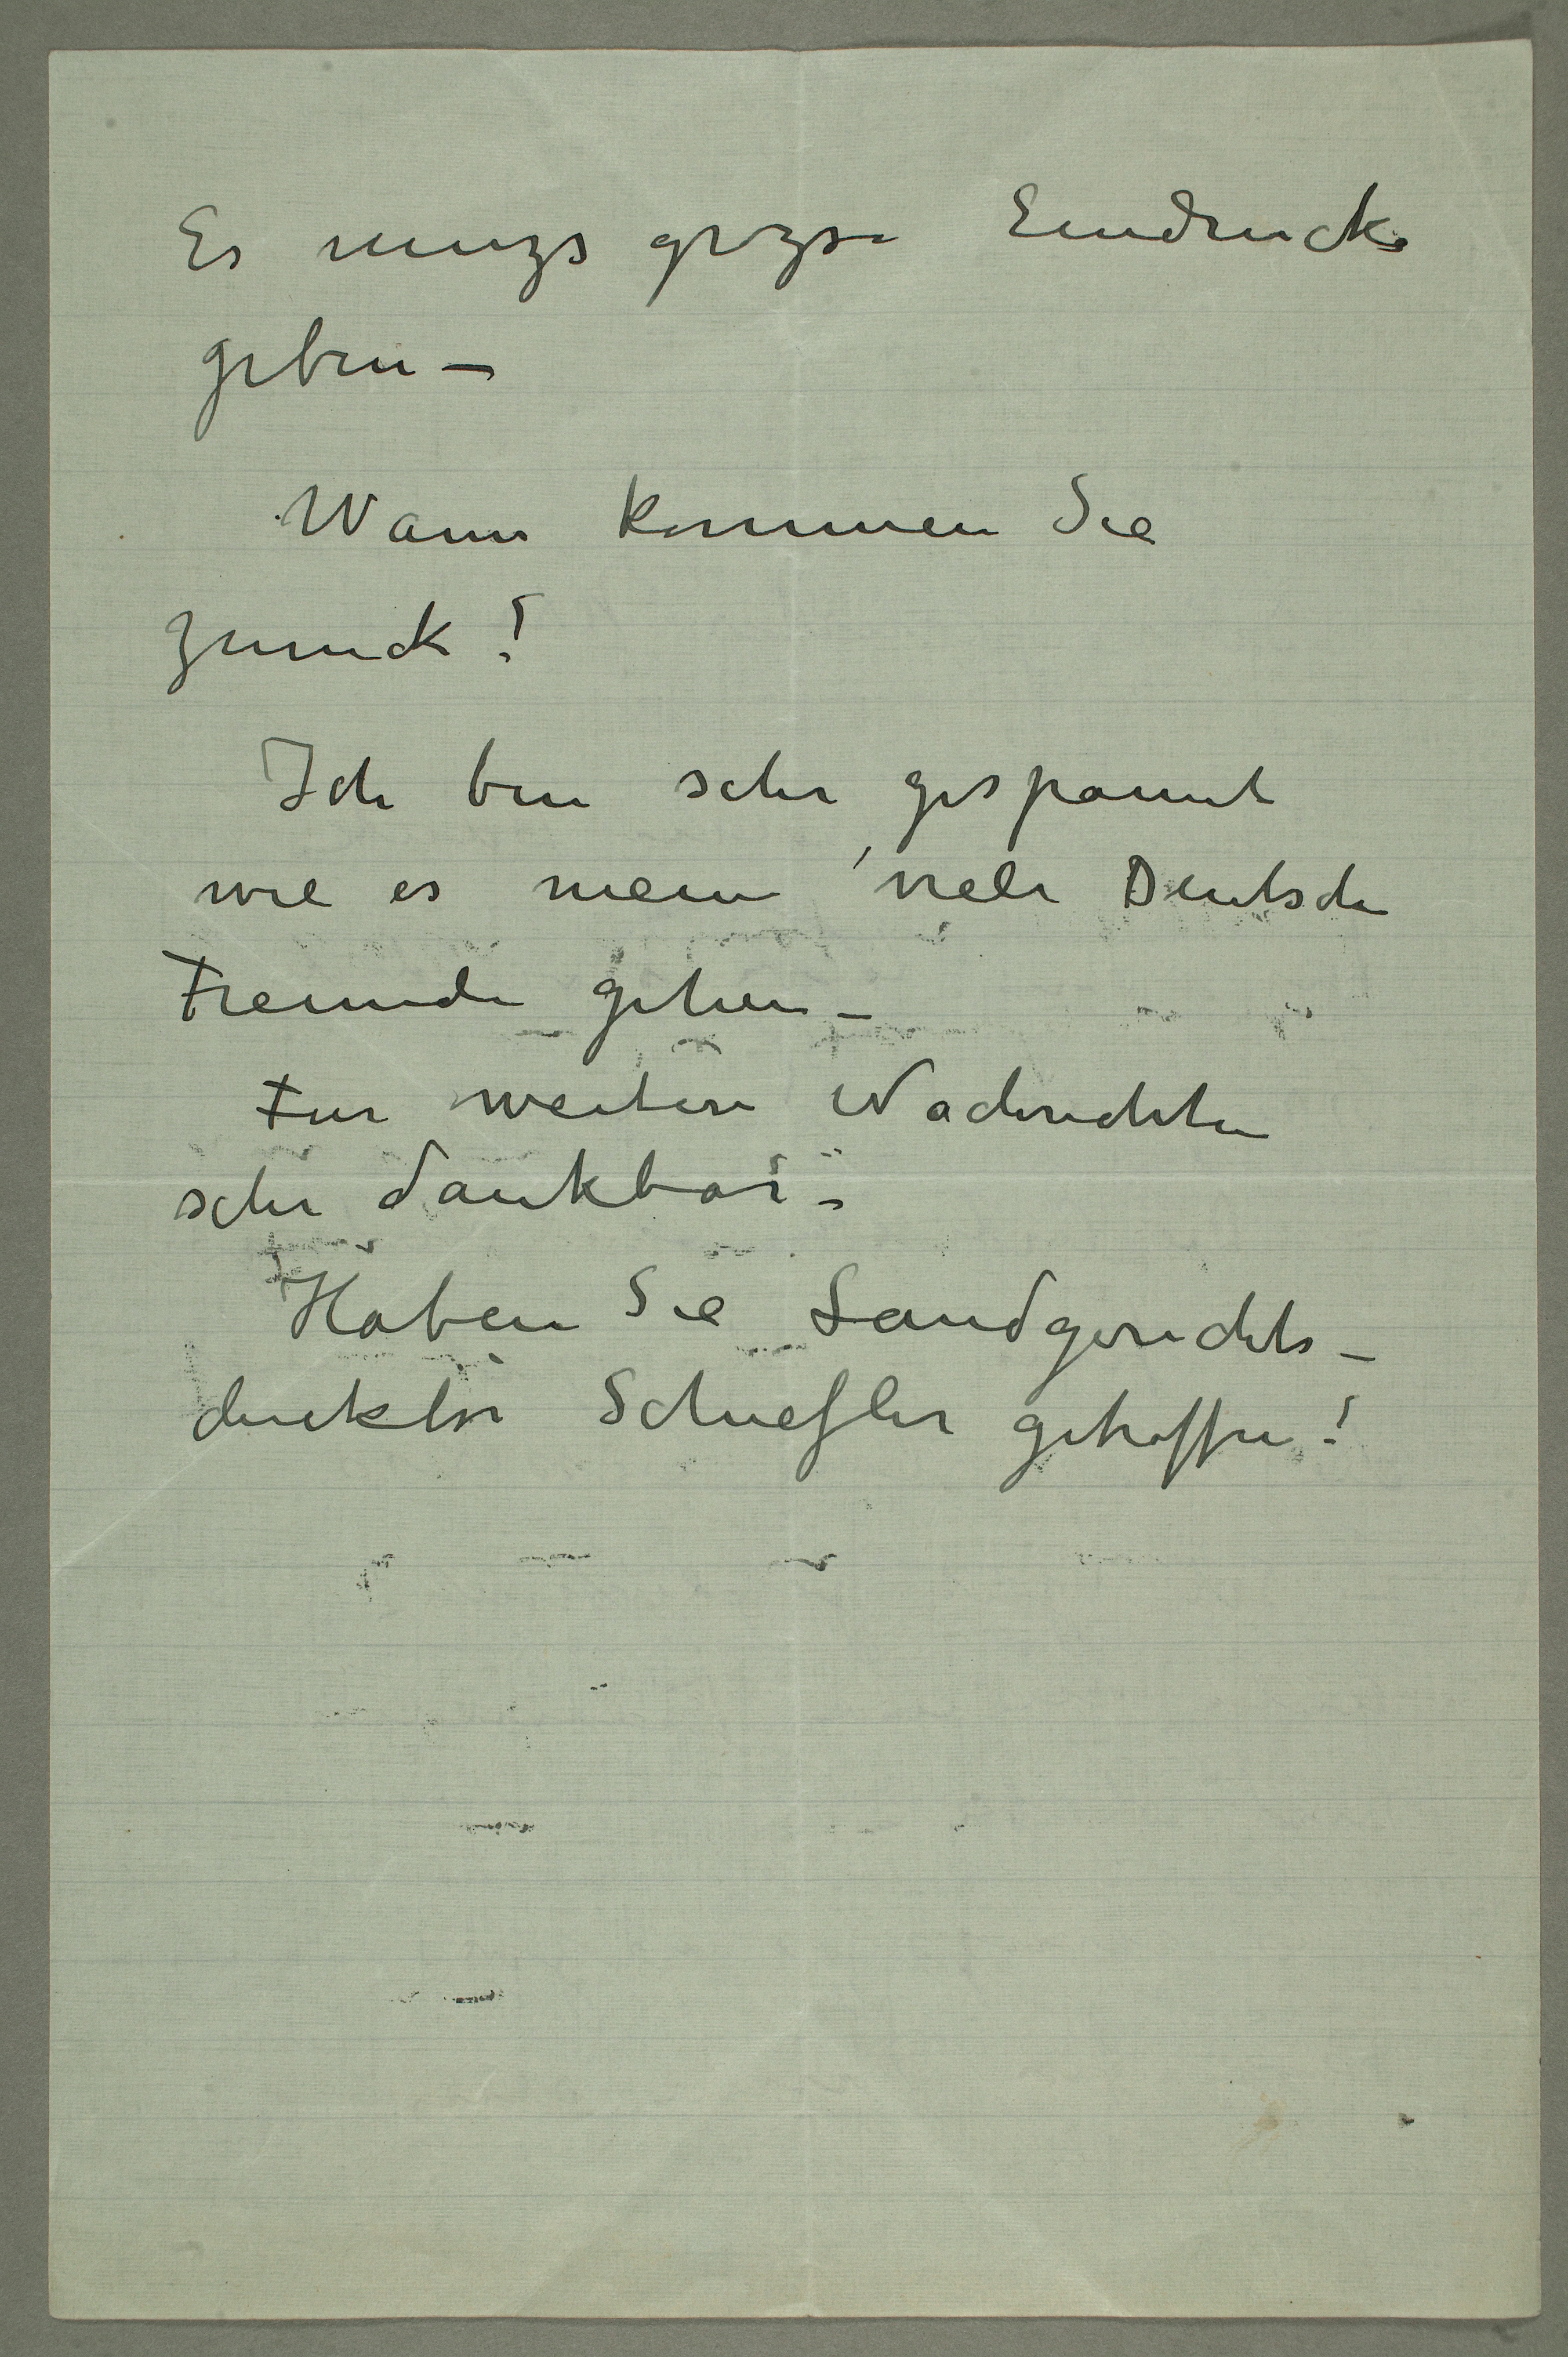 Es muzs grozse Eindrucke
geben –
Wann kommen Sie
zuruck!
Ich bin sehr gespannt
wie es meine viele Deutsche
Freunde gehen –
Fur weitere Nachrichten
sehr dankbar –
Haben Sie Landgerichts–
direktor Schiefler getroffen!